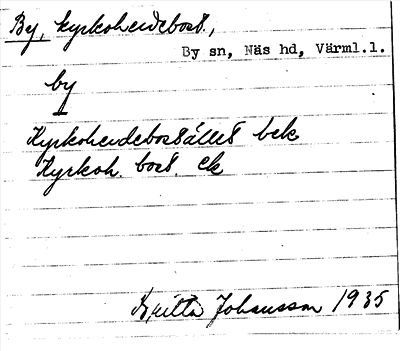 By, kyrkoherdebost.,
By sn, Näs hd, Värml.l.
by
Kyrkoherdebostället bek
Kyrkoh. bost. ek
Britta Johansson 1935